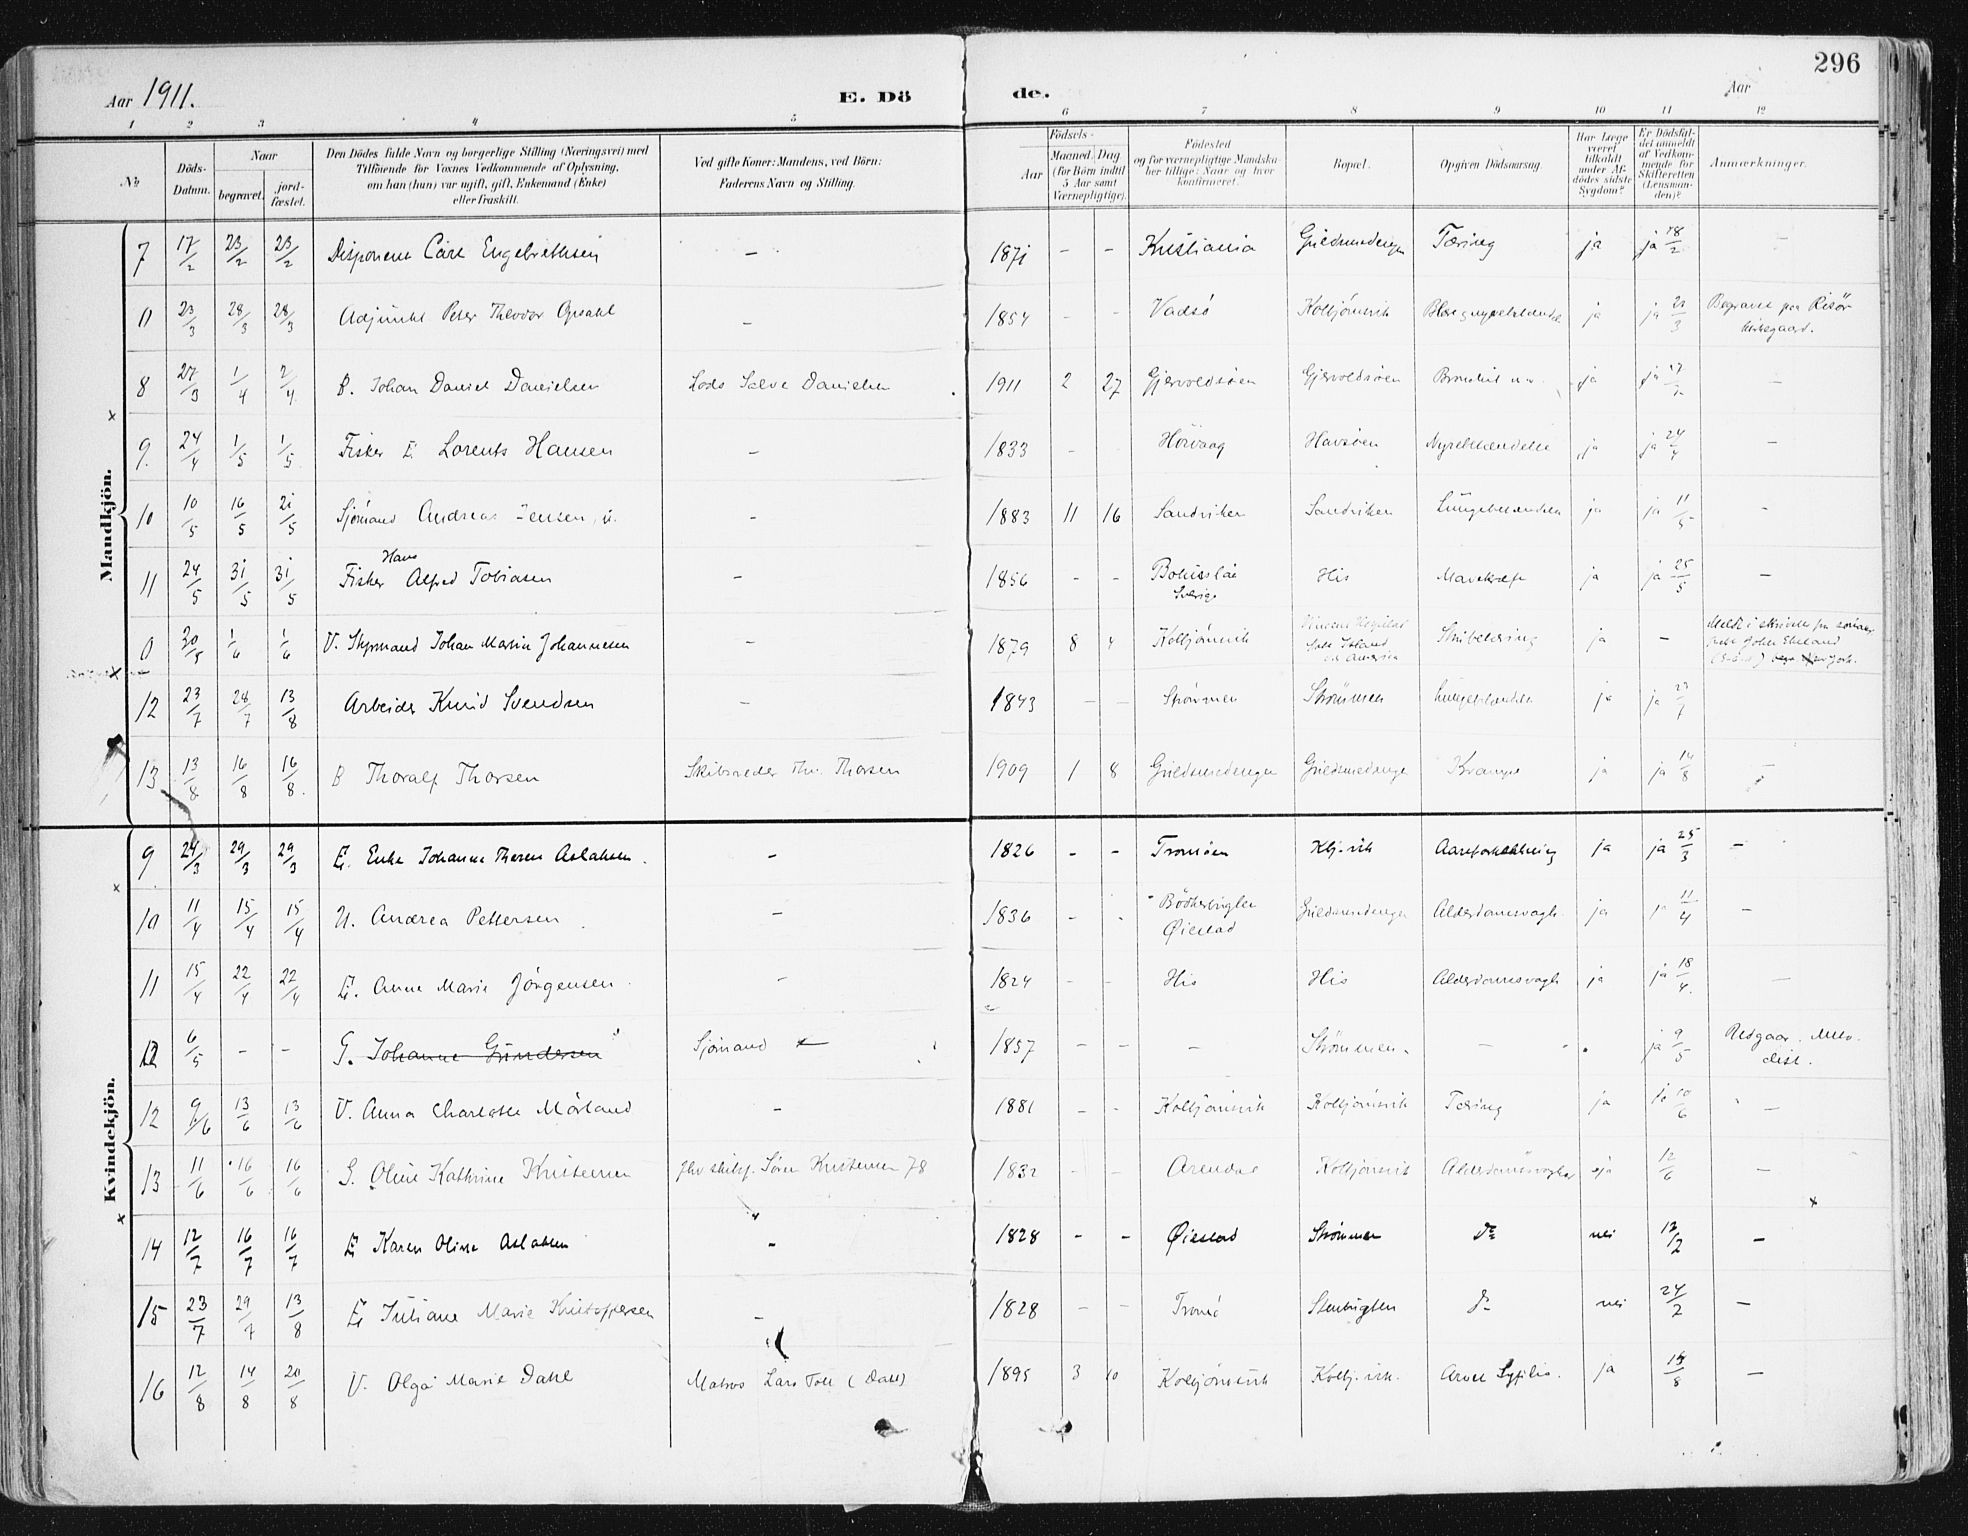 296
Aar 1911.
E. Dö
de.
Aar
1 2 3 4 5 6 7 8 9 10 11 12
№
Döds-Datum.
Naar
begravet.
jord-fæstet.
Den Dödes fulde Navn og borgerlige Stilling (Næringsvei) med
Tilföiende for Voxnes Vedkommende af Oplysning,
om han (hun) var ugift, gift, Enkemand (Enke)
eller fraskilt.
Ved gifte Koner: Mandens, ved Börn:
Faderens Navn og Stilling.
Födsels-
Aar
Maaned. Dag
(for Börn indtil
5 Aar samt
Værnepligtige).
Födested
og for værnepligtige Mandska-
ber tillige: Naar og hvor
konfirmeret.
Bopæl.
Opgiven Dödsaarsag.
Har Læge
været
tilkaldt
under Af-
dödes sidste
Sygdom?
Er Dödsfal-
det anmeldt
af Vedkom-
mende for
Skifteretten
(Lensman-
den)?
Anmærkninger.
Mandkjön.
7 17/2 23/2 23/2 Disponent Carl Engebrethsen — 1871 - - Kristiania Guldsmedengen Tæring ja ja 18/2 —
0 23/3 28/3 28/3 Adjunkt Peter Theodor Opsahl — 1854 - - Vadsö Kolbjörnsvik ja ja 23/3 Begravet paa Risör
Kirkegaard.
8 27/3 1/4 2/4 B. Johan Daniel Danielsen Lods Salve Danielsen 1911 2 27 Gjervoldsöen Gjervoldsöen ja ja —
9. 24/4 1/5 1/5 Fisker E. Lorents Hansen — 1833 - Hövaag Havsöen Nyrebetændelse ja ja 24/4 —
10 10/5 16/5 21/5 Sjömand Andreas Jensen, u. — 1883 11 16 Sandviken Sandviken Lungebetændelse ja ja 11/5 -
11 24/5 31/5 31/5 Fisker Hans Alfred Tobiasen — 1856 - - Bohuslæn
Sverige His Mavekræft ja ja 25/5 —
0 30/5 1/6 1/6 U. Styrmand Johan Martin Johannesen — 1879 8 4 Kolbjörnsvik ja —
12 23/7 28/7 13/8 Arbeider Knud Svendsen — 1843 — — Strömmen Strömmen Lungebetændelse ja ja 23/7
13 13/8 16/8 16/8 B Thoralf Thorsen Skibsreder Th. Thorsen 1909 1 8 Guldsmedengen Guldsmedengen Krampe ja ja 14/8 —
Kvindekjön.
9 24/3 29/3 29/3 E. Enke Johanne Therese Aslaksen. — 1826 - - Tromöen Kbj.vik Aareforkalkning ja ja 25/3 —
10 11/4 15/4 15/4 U. Andrea Pettersen — 1836 - - Öiestad Guldsmedengen Alderdomssvagh. ja 11/4 —
11 15/4 22/4 22/4 E. Anne Marie Jörgensen — 1824 - - His His Alderdomssvagh ja ja 18/4. —
12 6/5 - - G. Johanne Gundersen Sjömand 1857 — — — Strömmen — ja 9/5 Udgaar. Meto-
dist.
12 9/6 13/6 13/6 U. Anna Charlotte Mörland — 1881 - - Kolbjörnsvik Kolbjörnsvik Tæring ja 10/6 —
13 11/6 16/6 16/6 G. Oline Kathrine Kristensen fhv skibsf. Sören Kristensen 78 1832 - - Arendal Kolbjörnsvik Alderdomssvaghed ja 12/6 —
14 12/7 16/7 16/7 E Karen Oline Aslaksen — 1828 - - Øiestad Strömmen do nei 12/2 —
15 23/7 29/7 13/8 E Juliane Marie Kristoffersen — 1828 - - Tromö Stenbugten do nei 24/2 —
16 12/8 14/8 20/8 U. Olga Marie Dahl Matros Lars Toll (Dahl) 1895 3 10 Kolbjörnsvik Kolbj.vik. Arvet Syfilis. ja 14/8 —